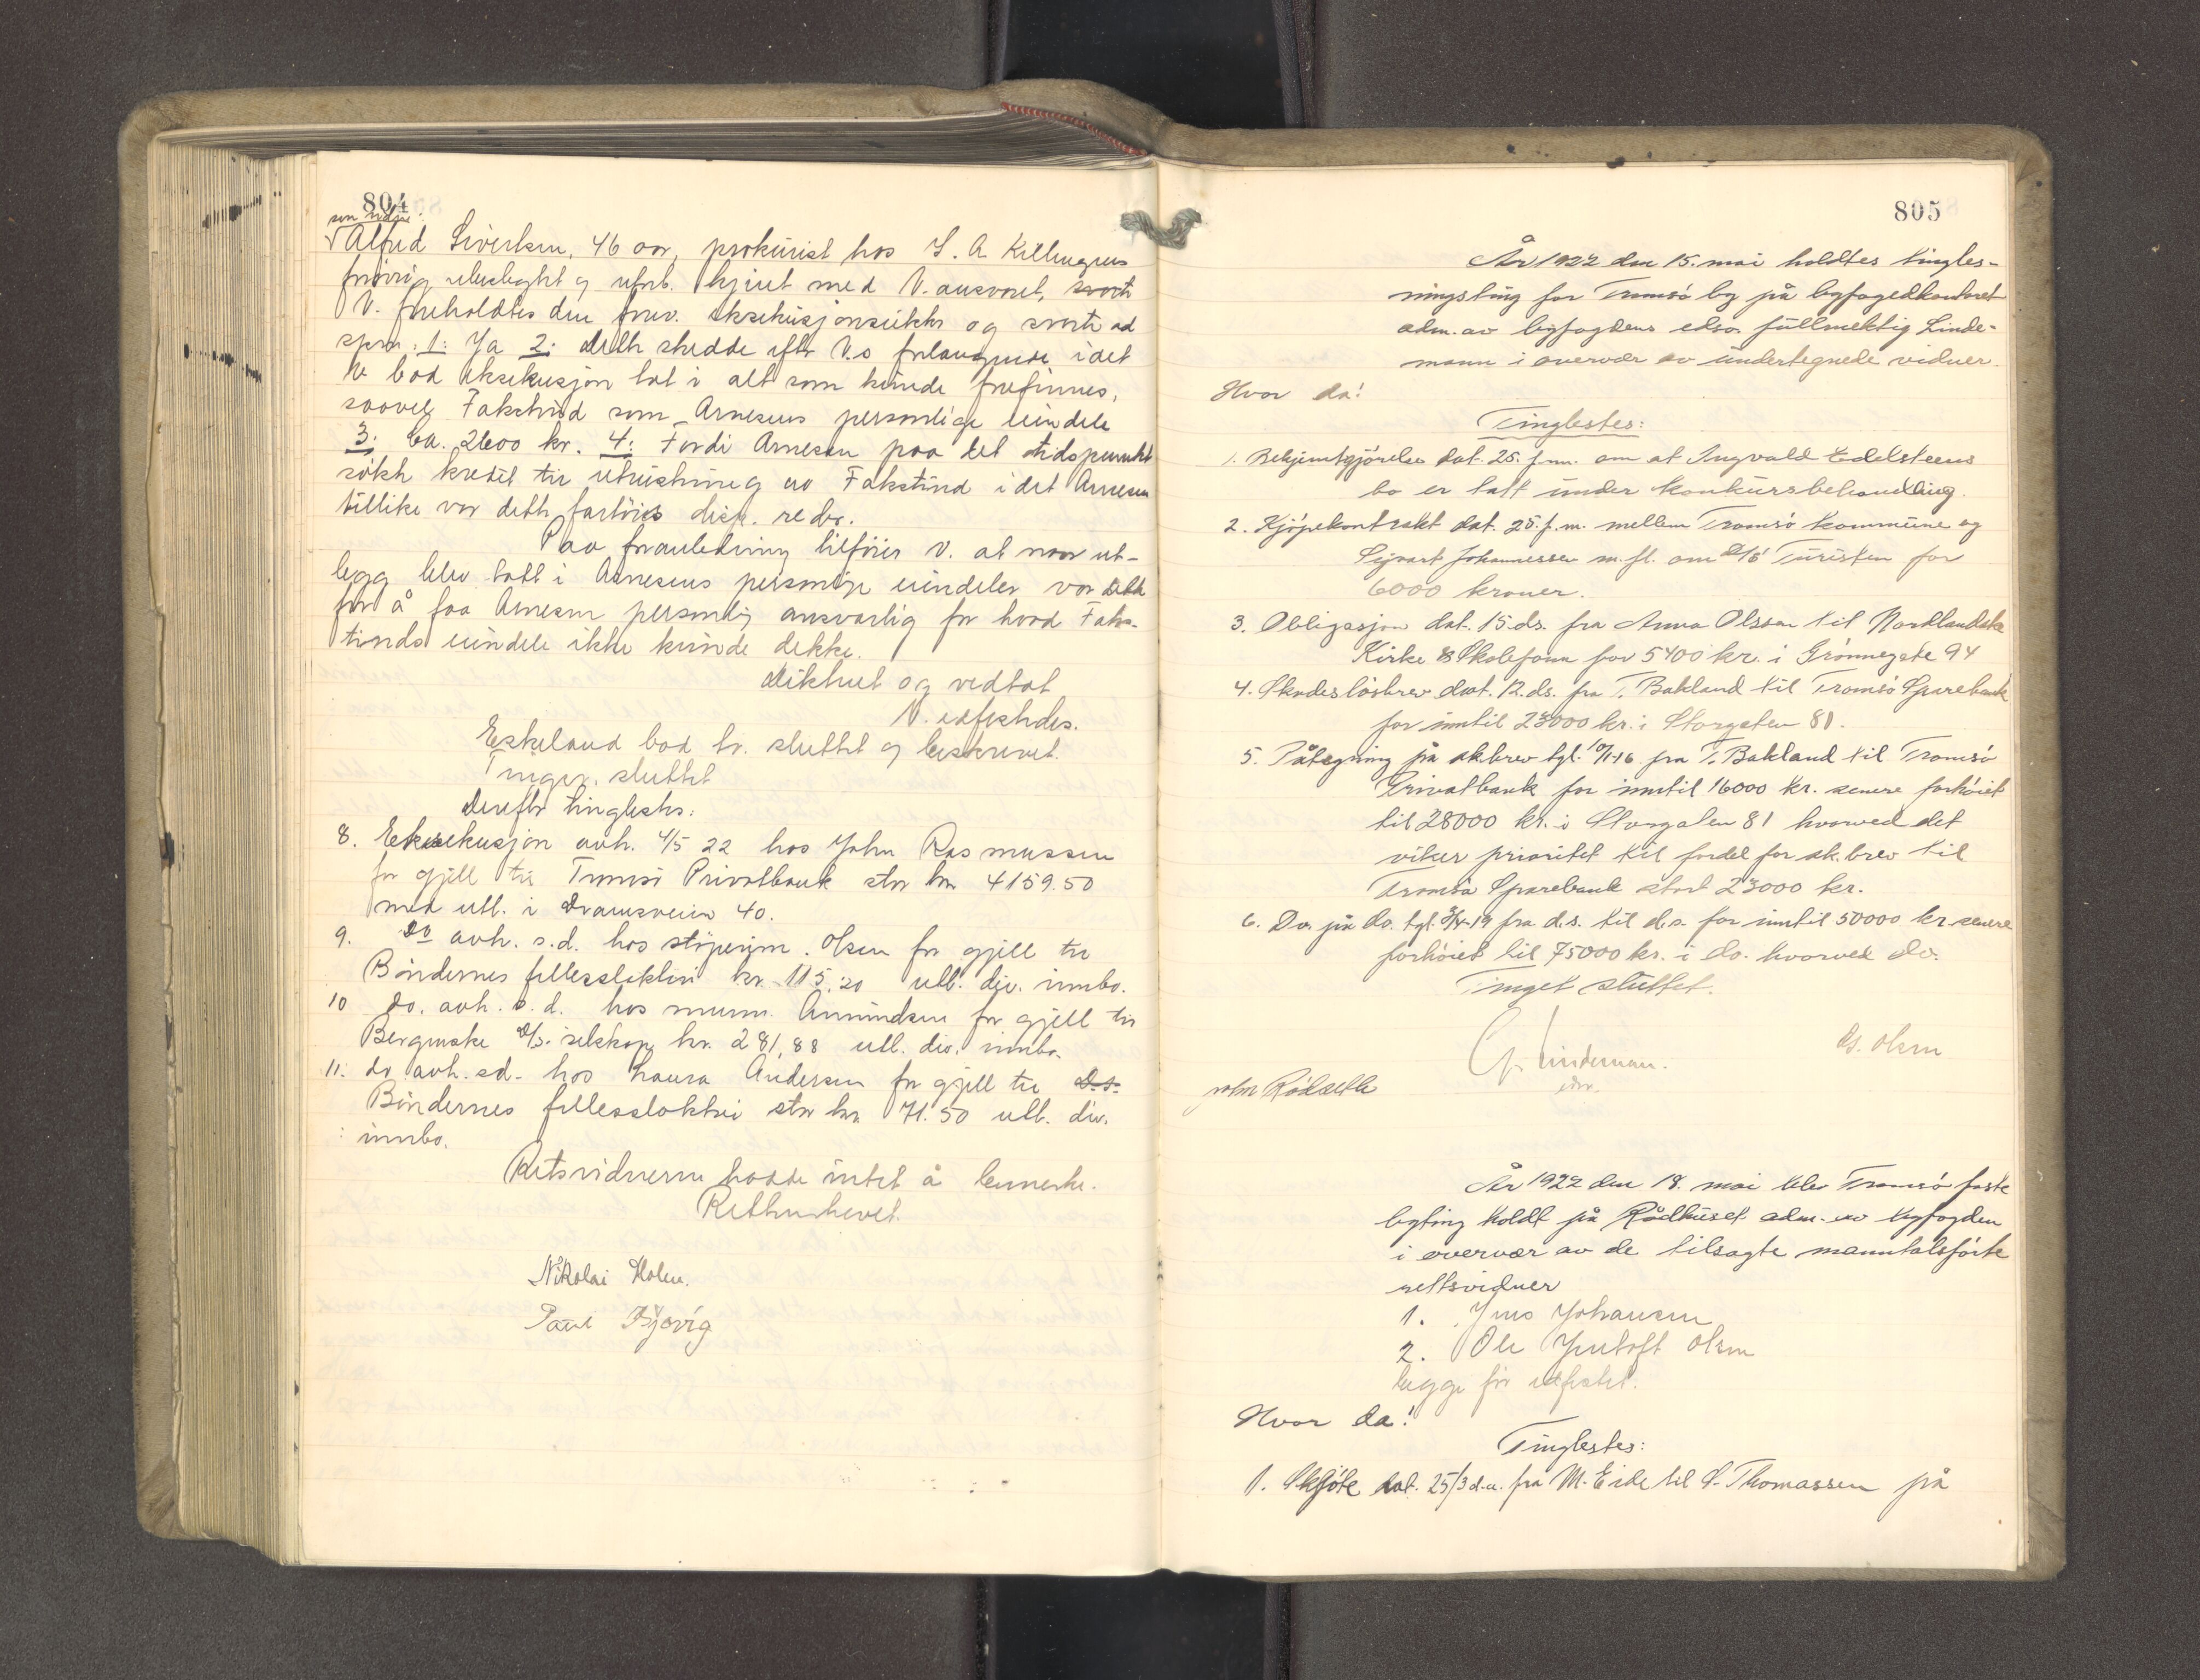 804
som vidne:
Alfred Sivertsen, 46 aar, prokurist hos L. A. Killengreens
forøvrig ubeslegtet og uforb. kjent med V. ansvaret, svorte
V. foreholdtes den frev. eksekusjonsutskr og svarte ad
spm. 1: Ja 2: dette skedde efter V.s forlangende idet
V. bad eksekusjon tat i alt som kunde forefinnes,
saavel Fakstind som Arnesens personlige eiendele
3: Ca. 2600 kr. 4: Fordi Arnesen paa det tidspunkt
søkte kredit til utrustning av Fakstind idet Arnesen
tillike var dette fartøis disp. reder.
Paa foranledning tilføier V. at naar ut-
legg blev tatt i Arnesens personlige eiendeler var dette
for å faa Arnesen personlig ansvarlig for hvad Faks-
tinds eiendele ikke kunde dekke.
Diktert og vedtat
V. edfestedes.
Eskeland bad tv. sluttet og beskrevet.
Tingv. sluttet
Derefter tinglestes:
8. Eksekusjon avh. 4/5 22 hos John Rasmussen
for gjell til Tromsø Privatbank stor kr 4159.50
med utl. i Dramsveien 40.
9. Do avh. s.d. hos støperim. Olsen for gjell til
Bøndernes fellesslakteri kr. 115,20 utl. div. innbo.
10 do. avh. s. d. hos murm. Amundsen for gjell til
Bergenske D/S. selskap kr. 281,88 utl. div. innbo.
11. do avh. sd. hos Laura Andersen for gjell til d.s.
Bøndernes fellesslakteri stor kr. 71.50 utl. div.
innbo.
Retsvidnerne hadde intet å bemerke.
Retten hevet.
Nikolai Holm.
Paul Bjørvig
805
År 1922 den 15. mai holdtes tingles-
ningsting for Tromsø by på byfogedkontoret
adm. av byfogdens edsv. fullmektig Linde-
mann i overvær av undertegnede vidner.
Hvor da!
Tinglestes:
1. Bekjentgjørelse dat. 25. f.m. om at Ingvald Edelsteens
bo er tatt under konkursbehandling.
2. Kjøpekontrakt dat. 25. f. m. mellem Tromsø kommune og
Sigvart Johannessen m. fl. om D/S Turisten for
6000 kroner.
3. Obligasjon dat. 15. ds. fra Anna Olssen til Nordlandske
Kirke & Skolefonn for 5400 kr. i Grønnegate 94
4. Skadesløsbrev dat. 12. ds. fra T. Bakland til Tromsø Sparebank
for inntil 23000 kr. i Storgaten 81.
5. Påtegning på sk.brev tgl. 10/1-16 fra T. Bakland til Tromsø
Privatbank for inntil 16000 kr. senere forhøiet
til 28000 kr. i Storgaten 81 hvorved det
viker prioritet til fordel for sk.brev til
Tromsø Sparebank stort 23000 kr.
6. Do. på do. tgl. 3/4-19 fra d.s. til d.s. for inntil 50000 kr. senere
forhøiet til 75000 kr. i do. hvorved do.
Tinget sluttet.
G. Lindeman.
edsv.
Ds. Olsen
John Rødsæth
År 1922 den 18. mai blev Tromsø faste
byting holdt på Rådhuset adm. av byfogden
i overvær av de tilsagte manntalsførte
rettsvidner
1. Jens Johansen
2. Ole Jentoft Olsen
begge før edfestet.
Hvor da!
Tinglestes:
1. Skjøte dat. 25/3 d.a. fra M. Eide til S. Thomassen på